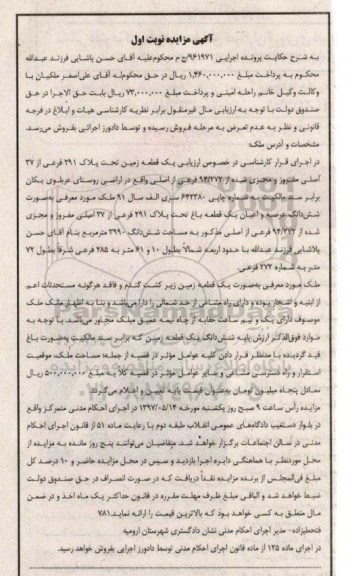 آگهی مزایده نوبت اول
به شرح حکایت پرونده اجرایی ۹۶۱۹۷۱/ج م محکوم‌علیه آقای حسن پاشایی فرزند عبدالله
محکوم به پرداخت مبلغ ۱,۴۶۰,۰۰۰,۰۰۰ ریال در حق محکوم‌له آقای علی‌اصغر ملکیان با
وکالت وکیل خانم راحله امینی و پرداخت مبلغ ۷۳,۰۰۰,۰۰۰ ریال بابت حق الاجرا در حق
صندوق دولت با توجه به ارزیابی مال غیرمنقول برابر نظریه کارشناسی هیات و ابلاغ در فرجه
قانونی و نظر به عدم تعرض به مرحله فروش رسیده و توسط دادورز اجرائی بفروش می‌رسد.
مشخصات و آدرس ملک:
در اجرای قرار کارشناسی در خصوص ارزیابی یک قطعه زمین تحت پلاک ۲۹۱ فرعی از ۳۷
اصلی مفروز و مجزی شده از ۱۴/۲۷۲ فرعی از اصلی واقع در اراضی روستای عربلوی یکان
برابر سند مالکیت به شماره چاپی ۶۴۲۳۸۰ سری الف سال ۹۱ ملک مورد معرفی به‌صورت
شش‌دانگ عرصه و اعیان یک قطعه باغ تحت پلاک ۲۹۱ فرعی از ۳۷ اصلی مفروز و مجزی
شده از ۹۴/۲۷۲ فرعی از اصلی مذکور به مساحت شش‌دانگ ۳۹۹۰ مترمربع بنام آقای حسن
پلاشایی فرزند عبدالله با حدود اربعه شمالاً بطول ۱۰ و ۶۱ متر به ۲۸۵ فرعی شرقاً بطول ۷۲
متر به شماره ۲۷۲ فرعی.
ملک مورد معرفی به‌صورت یک قطعه زمین زیر کشت گندم و فاقد هرگونه مستحدثات اعم
از ابنیه و اشجار بوده و دارای راه مشاعی از حد شمالی را دارا می‌باشد و بنا به اظهار مالک ملک
موصوف دارای یک و نیم ساعت حقابه از چاه نیمه عمیق ملک مجاور می‌باشد. با توجه به
موارد فوق‌الذکر ارزش پایه شش‌دانگ یک قطعه زمین که برابر سند مالکیت به‌صورت باغ
قید گردیده با منظقر قرار دادن کلیه عوامل مؤثر در قضیه از جمله: مساحت ملک، موقعیت
استقرار و راه دسترسی مشاعی و سایر عوامل مؤثر در قضیه کلاً به مبلغ ۵۰۰,۰۰۰,۰۰۰ ریال
معادل پنجاه میلیون تومان به‌عنوان قیمت پایه تعیین و اعلام می‌گردد.
مزایده رأس ساعت ۹ صبح روز یکشنبه مورخه ۱۳۹۷/۰۵/۱۴ در اجرای احکام مدنی متمرکز واقع
در بلوار دستغیب دادگاه‌های عمومی انقلاب طبقه دوم با رعایت ماده ۵۱ از قانون اجرای احکام
مدنی در سالن اجتماعات برگزار خواهد شد. متقاضیان می‌توانند پنج روز مانده به مزایده از
محل موردنظر با هماهنگی دایره اجرا بازدید و سپس در محل مزایده حاضر و ۱۰ درصد کل
مبلغ فی‌المجلس از برنده مزایده نقداً دریافت که در صورت انصراف در حق صندوق دولت
ضبط خواهد شد و الباقی مبلغ ظرف مهلت مقرره در قانون حداکثر یک ماه اخذ و در ضمن
مال متعلق به کسی خواهد بود که بالاترین قیمت را ارائه نماید. ۷۸۱
فتحعلیزاده- مدیر اجرای احکام مدنی نشان دادگستری شهرستان ارومیه
در اجرای ماده ۱۲۵ از ماده قانون اجرای احکام مدنی توسط دادورز اجرایی بفروش خواهد رسید.
ParsNamadData